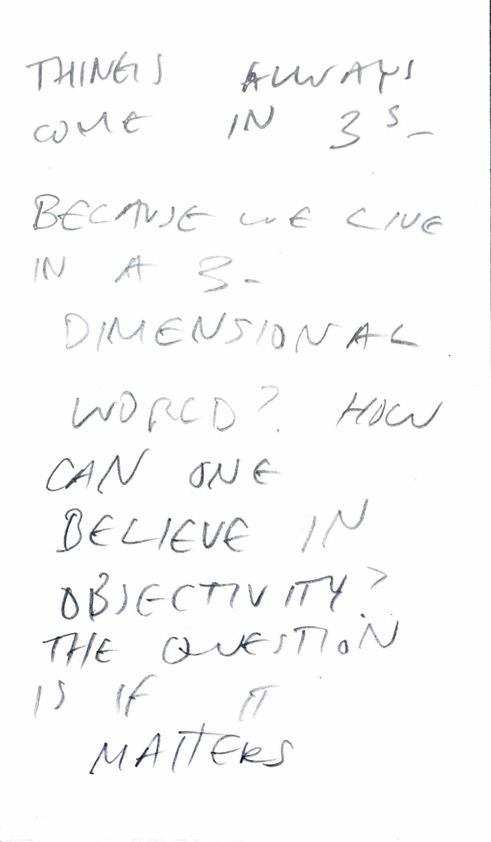 THINGS ALWAYS
COME IN 3s-
BECAUSE WE LIVE
IN A 3-
DIMENSIONAL
WORLD? HOW
CAN ONE
BELIEVE IN
OBJECTIVITY?
THE QUESTION
IS IF IT
MATTERS